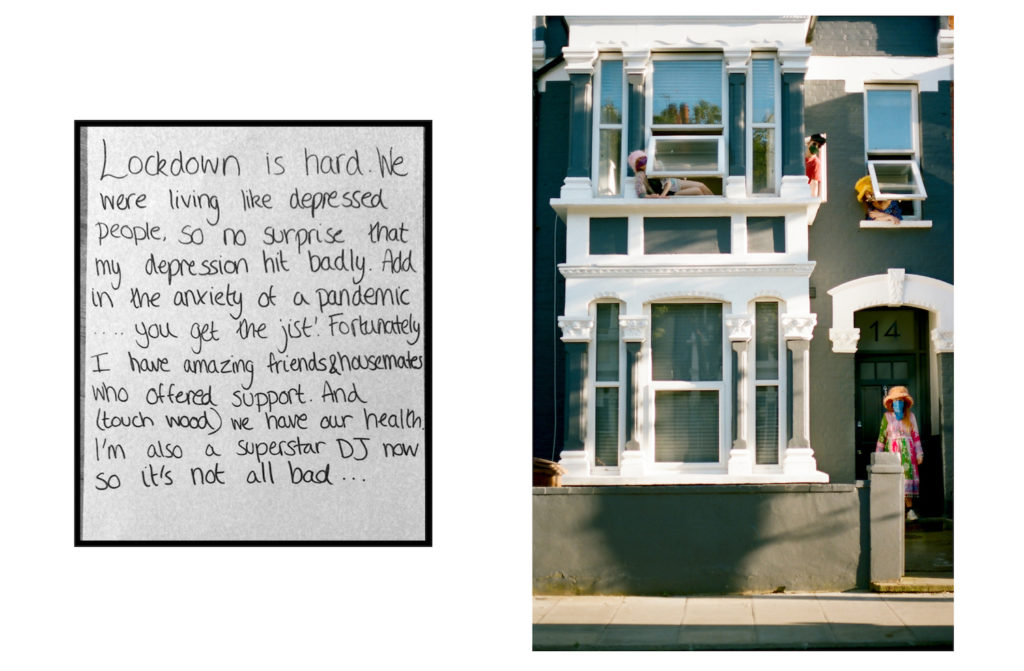 Lockdown is hard. We
were living like depressed
people, so no surprise that
my depression hit badly. Add
in the anxiety of a pandemic
.... you get the jist! Fortunately
I have amazing friends & housemates
who offered support. And
(touch wood) we have our health.
I'm also a superstar DJ now
so it's not all bad ...
14